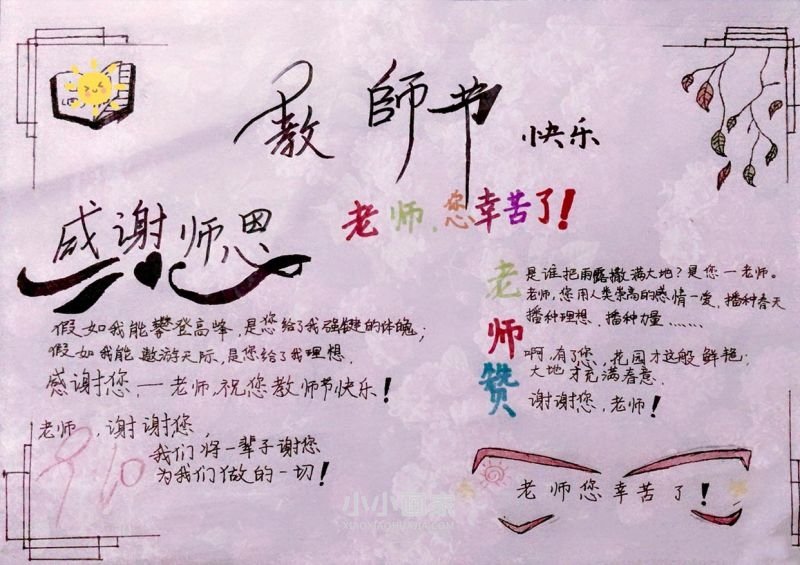 教師节
快乐
老师,您幸苦了!
感谢师恩
假如我能攀登高峰,是您给了我强健的体魄;
假如我能遨游天际,是您给了我理想.
感谢您,一老师,祝您教师节快乐!
老师,谢谢您,
我们将一辈子谢您
为我们做的一切!
9.10
老师赞
是谁把雨露撒满大地?是您一老师。
老师,您用人类崇高的感情一爱,播种春天
播种理想、播种力量......
啊,有了您,花园才这般鲜艳;
大地才充满春意.
谢谢您,老师!
老师您幸苦了!
小小画家
XIAOXIAOHUAJIA.COM